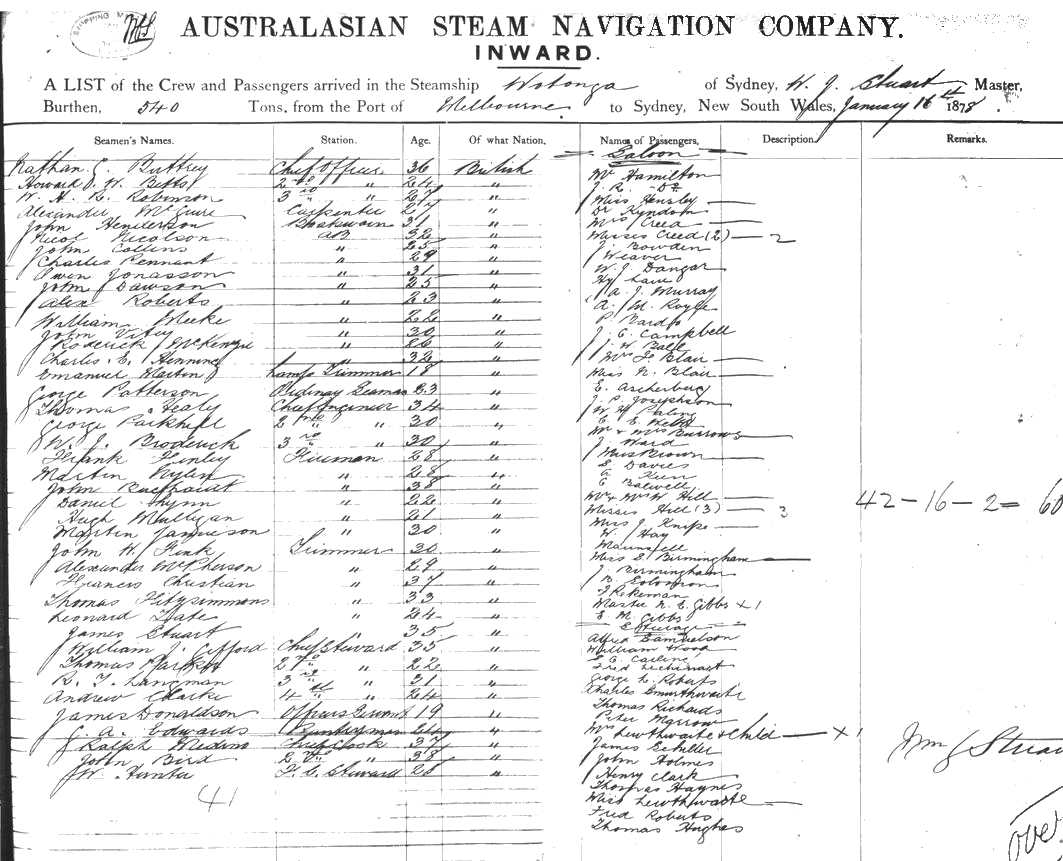 AUSTRALASIAN STEAM NAVIGATION COMPANY.
INWARD.
A LIST of the Crew and Passengers arrived in the Steamship Wotonga of Sydney, W. J. Stuart Master,
Burthen, 540 Tons, from the Port of Melbourne to Sydney, New South Wales, January 16th 1878.
Seamen's Names. Station. Age. Of what Nation. Names of Passengers, Description. Remarks.
Saloon
Nathan Buttrey Chief Officer 36 British Mr Hamilton
Howard W. Betts 2nd " 24 " J. R. Do
W. H. B. Robinson 3rd " 27 " Miss Hensley —
Alexander McGuire Carpenter " Dr Kyndom
John Henderson Boatswain 31 " Mrs Creed —
Nicol Nicolson AB 32 " Misses Creed (2) — 2
John Collins " 25 " J. Bowden
Charles Pennant " 29 " Weaver
Owen Jonasson " 31 " W. J. Dangar
John Dawson " 25 " Hy Lane
Alex Roberts " 23 " A. J. Murray
A. M. Royle
William Meeke " 22 " P. Bardt
John " 30 " J. C. Campbell
Roderick McKenzie " 26 " J. W. Ball
Charles E. Henning " 32 " Mrs F. Blair —
Emanuel Martin Lamp Trimmer 18 " Miss N. Blair —
George Patterson Ordinary Seaman 23 " E. Ascherberg
Thomas Healy Chief Engineer 34 " J. P. Josephson
George Parkhill 2nd " 30 " W. H. Paling
E. E. Webb
W. J. Broderick 3rd " 30 " Mr & Mrs Burrows —
Frank Finley Fireman 28 " J. Ward
Martin Nylen " 28 " Miss Brown —
John " 38 " S. Davies
Daniel Flynn " 22 " A. Keen
Hugh Mulligan " 21 " E. Balwell
Martin Jamieson " 30 " Mr & Mrs W Hill —
John W. Fink Trimmer 30 " Misses Hill (3) — 3
42 – 16 – 2 = 60
Alexander McPherson " 29 " Miss J. Knipe —
Francis Christian " 37 " W. Hay
Thomas Fitzsimmons " 33 " Maunsell
Leonard Tate " 24 " Miss E. Birmingham —
James Stuart " 35 " J. Birmingham
William J. Gifford Chief Steward 35 " B. Solomon
Thomas 2nd " 22 " Master N. E. Gibbs x 1
R. T. Langman 3rd " 31 " E. M. Gibbs
Andrew Clarke 4th " 24 " Steerage
James Donaldson Officers Servant 19 " Alfred Samuelson
G. A. Edwards Pantryman 24 " William Wood
Ralph Chief Cook 37 " S. E. Carling
John Bird 2nd " 38 " Fred
W. Hunter F. C. Steward 28 " George L. Roberts
41
Charles Smurthwaite
Thomas Richards
Peter Morrow
Mrs Lewthwaite & Child — x 1
James Schiller
John Holmes
Henry Clark
Thomas Haynes
Miss Lewthwaite —
Fred Roberts
Thomas Hughes
Wm J Stuart
over